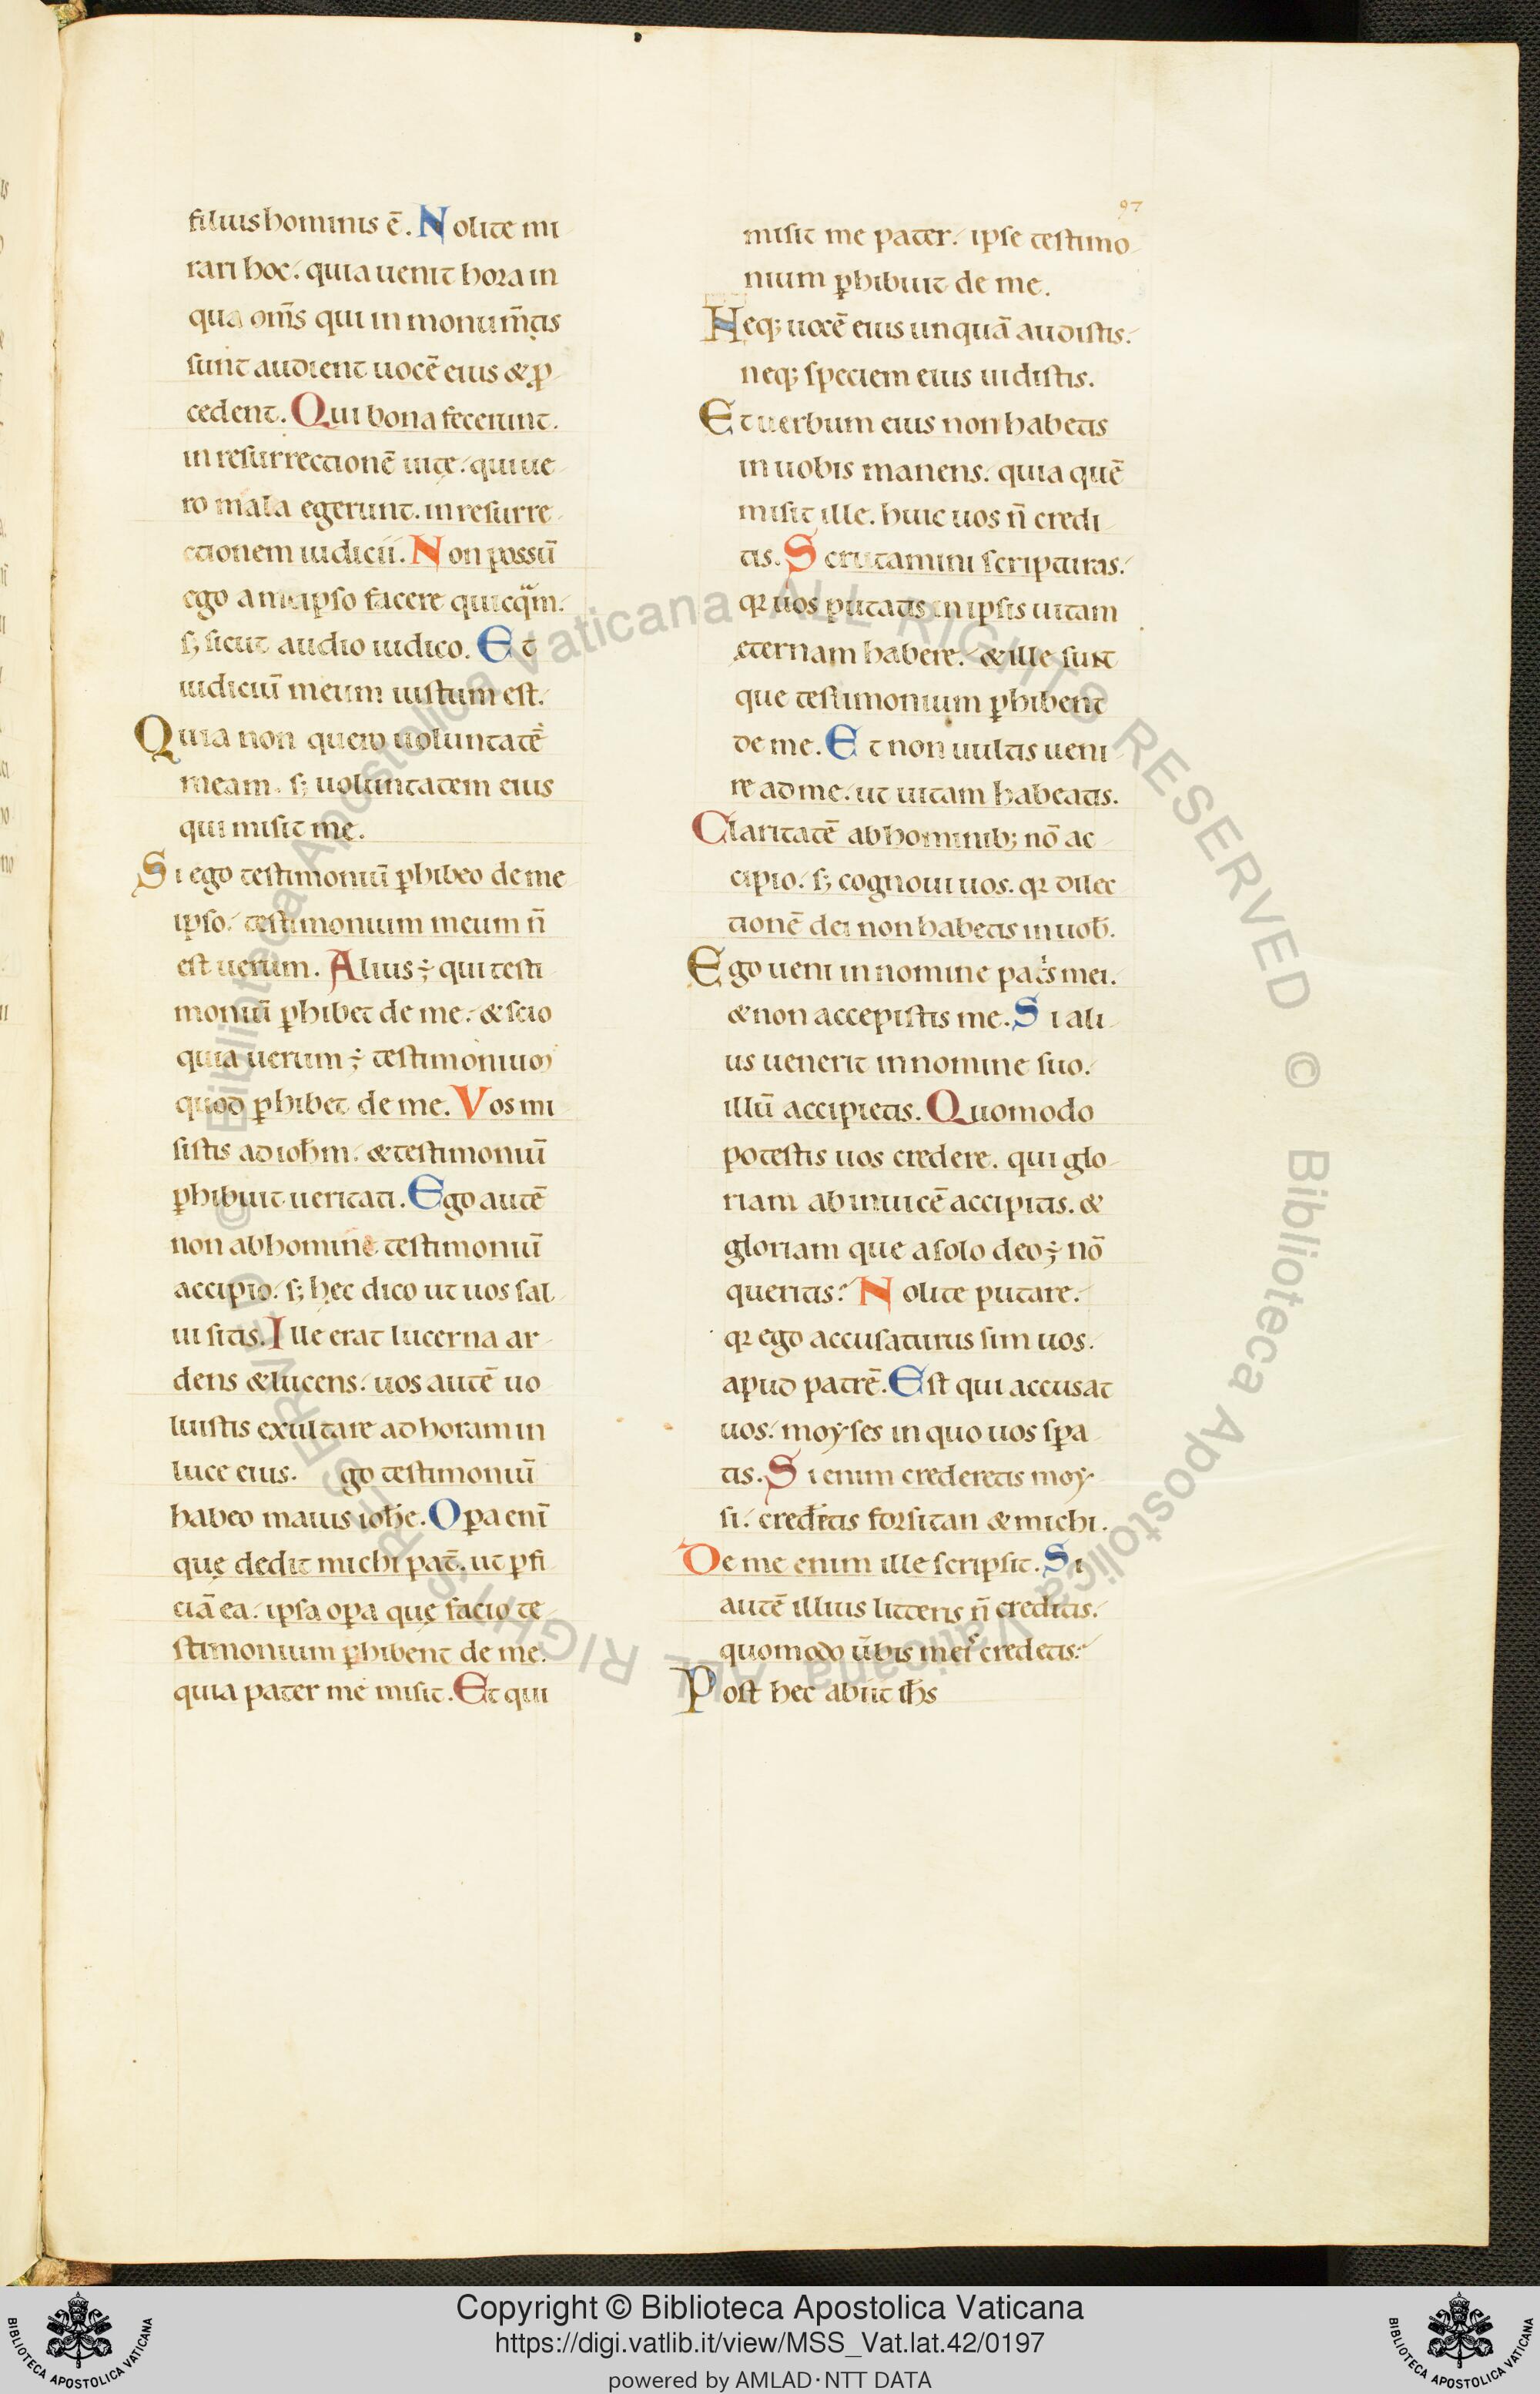 97
filius hominis ē. Nolite mi
rari hoc. quia uenit hora in
qua om̄s qui in monum̄tis
sunt audient uocē eius & ꝓ
cedent. Qui bona fecerunt.
in resurrectionē uitę. qui ue
ro mala egerunt. in resurre
ctionem iudicii. Non possū
ego a meipso facere quicq̄m.
s; sicut audio iudico. Et
iudiciū meum iustum est.
Quia non quero uoluntatē
meam. s; uoluntatem eius
qui misit me.
Si ego testimoniū ꝑhibeo de me
ipso. testimonium meum n̄
est uerum. Alius ÷ qui testi
moniū ꝑhibet de me. & scio
quia uerum ÷ testimonium
quod ꝑhibet de me. Vos mi
sistis ad ioh̄m. & testimoniū
ꝑhibuit ueritati. Ego autē
non ab homine testimoniū
accipio. s; hęc dico ut uos sal
ui sitis. Ille erat lucerna ar
dens & lucens. uos autē uo
luistis exultare ad horam in
luce eius. go testimoniū
habeo maius ioh̄e. Oꝑa enī
quę dedit michi pat̄. ut ꝑfi
ciā ea. ipsa oꝑa quę facio te
stimonium ꝑhibent de me.
quia pater me misit. Et qui
misit me pater. ipse testimo
nium ꝑhibuit de me.
Neq; uocē eius unquā audistis.
neq; speciem eius uidistis.
Et uerbum eius non habetis
in uobis manens. quia quē
misit ille. huic uos n̄ credi
tis. Scrutamini scripturas.
qꝛ uos putatis in ipsis uitam
ęternam habere. & ille sunt
que testimonium ꝑhibent
de me. Et non uultis ueni
re ad me. ut uitam habeatis.
Claritatē ab hominib; nō ac
cipio. s; cognoui uos. qꝛ dilec
tionē dei non habetis in uob̄.
Ego ueni in nomine pat̄s mei.
& non accepistis me. Si ali
us uenerit in nomine suo.
illū accipietis. Quomodo
potestis uos credere. qui glo
riam ab inuicē accipitis. &
gloriam que a solo deo ÷ nō
queritis? Nolite putare.
qꝛ ego accusaturus sim uos.
apud patrē. Est qui accusat
uos. moyses in quo uos sꝑa
tis. Si enim crederetis moy
si. cred̄etis forsitan & michi.
De me enim ille scripsit. Si
autē illius litteris n̄ creditis.
quomodo ūbis meis credetis?
Post hec abiit ih̄s
© Biblioteca Apostolica Vaticana ALL RIGHTS RESERVED © Biblioteca Apostolica Vaticana ALL RIGHTS RESERVED
BIBLIOTECA APOSTOLICA VATICANA
Copyright © Biblioteca Apostolica Vaticana
https://digi.vatlib.it/view/MSS_Vat.lat.42/0197
powered by AMLAD·NTT DATA
BIBLIOTECA APOSTOLICA VATICANA